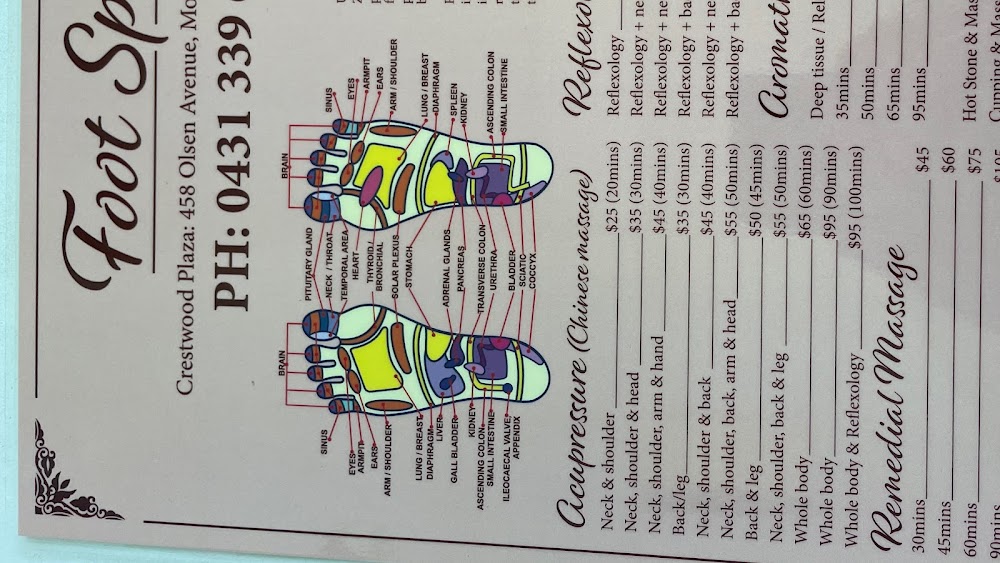 Foot Sp
Crestwood Plaza: 458 Olsen Avenue, Mo
PH: 0431 339
BRAIN
SINUS
EYES
ARMPIT
EARS
ARM / SHOULDER
LUNG / BREAST
DIAPHRAGM
LIVER
GALL BLADDER
KIDNEY
ASCENDING COLON
SMALL INTESTINE
ILEOCAECAL VALVE
APPENDIX
PITUITARY GLAND
NECK / THROAT
TEMPORAL AREA
HEART
THYROID /
BRONCHIAL
SOLAR PLEXUS
STOMACH
ADRENAL GLANDS
PANCREAS
TRANSVERSE COLON
URETHRA
BLADDER
SCIATIC
COCCYX
BRAIN
SINUS
EYES
ARMPIT
EARS
ARM / SHOULDER
LUNG / BREAST
DIAPHRAGM
SPLEEN
KIDNEY
ASCENDING COLON
SMALL INTESTINE
Acupressure (Chinese massage)
Neck & shoulder $25 (20mins)
Neck, shoulder & head $35 (30mins)
Neck, shoulder, arm & hand $45 (40mins)
Back/leg $35 (30mins)
Neck, shoulder & back $45 (40mins)
Neck, shoulder, back, arm & head $55 (50mins)
Back & leg $50 (45mins)
Neck, shoulder, back & leg $55 (50mins)
Whole body $65 (60mins)
Whole body $95 (90mins)
Whole body & Reflexology $95 (100mins)
Remedial Massage
30mins $45
45mins $60
60mins $75
90mins
Reflexo
Reflexology
Reflexology + ne
Reflexology + ne
Reflexology + ba
Reflexology + ne
Reflexology + ba
Aromath
Deep tissue / Rel
35mins
50mins
65mins
95mins
Hot Stone & Mas
Cupping & Mass